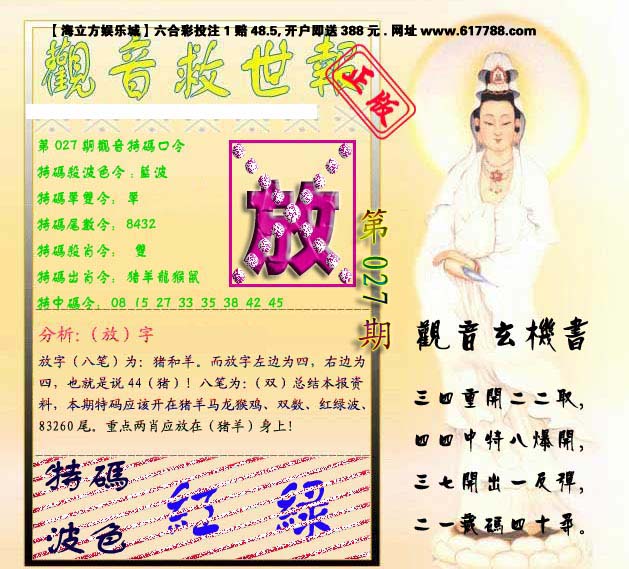 【海立方娱乐城】六合彩投注1赔48.5,开户即送388元.网址www.617788.com
觀音救世報
正版
第027期觀音特碼口令
特碼殺波色令:藍波
特碼單雙令: 單
特碼尾數令: 8432
特碼殺肖令: 雙
特碼出肖令: 猪羊龍猴鼠
特中碼令: 08 15 27 33 35 38 42 45
放
第027期
分析:(放)字
放字(八笔)为:猪和羊。而放字左边为四,右边为
四,也就是说44(猪)!八笔为:(双)总结本报资
料,本期特码应该开在猪羊马龙猴鸡、双数、红绿波、
83260尾。重点两肖应放在(猪羊)身上!
特碼
波色
紅 綠
觀音玄機書
三四重開二二取,
四四中特八爆開,
三七開出一反彈,
二一載碼四十尋。